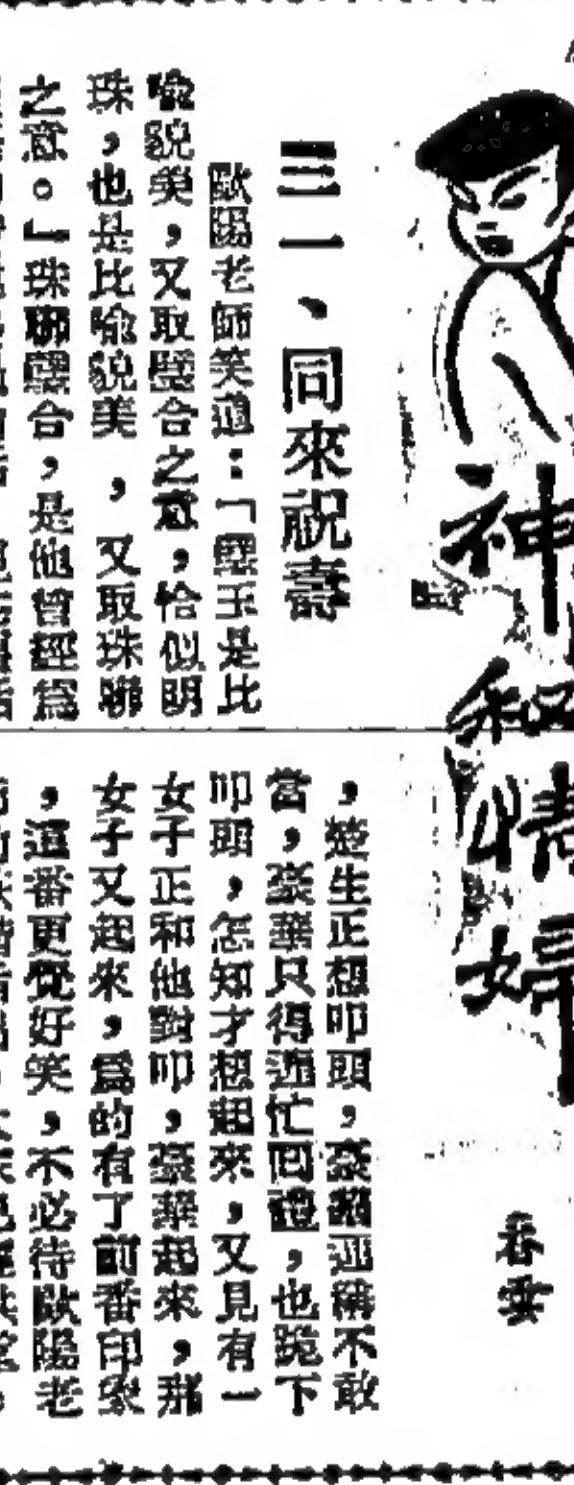 神和情婦
春雲
三一、同來祝壽
歐陽老師笑道：「璧玉是比
喻貌美，又取璧合之意，恰似明
珠，也是比喻貌美，又取珠聯
之意。」珠聯璧合，是他曾經爲
，楚生正想叩頭，豪華連稱不敢
當，豪華只得連忙回禮，也跪下
叩頭，怎知才想起來，又見有一
女子正和他對叩，豪華起來，那
女子又起來，爲的有了前番印象
，這番更覺好笑，不必待歐陽老